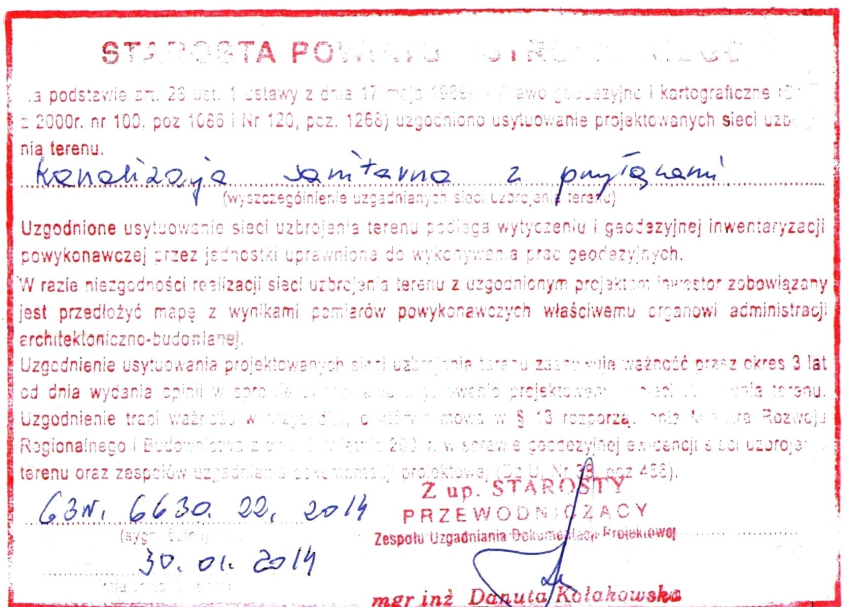 STAROSTA
podstawie art. 1 ustawy z dnia 17 maja Prawo geodezyjne i kartograficzne
z 2000r. nr 100, poz 1086 i Nr 120, poz. 1268) uzgodniono usytuowanie projektowanych sieci
nia terenu.
kanalizacja sanitarna z przyłączami
(wyszczególnienie uzgadnianych sieci uzbrojenia terenu)
Uzgodnione usytuowanie sieci uzbrojenia terenu podlega wytyczeniu i geodezyjnej inwentaryzacji
powykonawczej przez jednostki uprawnione do wykonywania prac geodezyjnych.
W razie niezgodności realizacji sieci uzbrojenia terenu z uzgodnionym projektem inwestor zobowiązany
jest przedłożyć mapę z wynikami pomiarów powykonawczych właściwemu organowi administracji
architektoniczno-budowlanej.
Uzgodnienie usytuowania projektowanych sieci uzbrojenia terenu zachowuje ważność przez okres 3 lat
od dnia wydania opinii w projektowanych sieci terenu.
Uzgodnienie traci ważność w o mowa w § 13 Rozwoju
Regionalnego i Budownictwa w sprawie geodezyjnej ewidencji sieci
terenu oraz zespołów uzgadniania projektowej
Z up. STAROSTY
G3N. 6630. 22. 2014
PRZEWODNICZĄCY
Zespołu Uzgadniania Dokumentacji Projektowej
30. 01. 2014
mgr inż Danuta Kołakowska